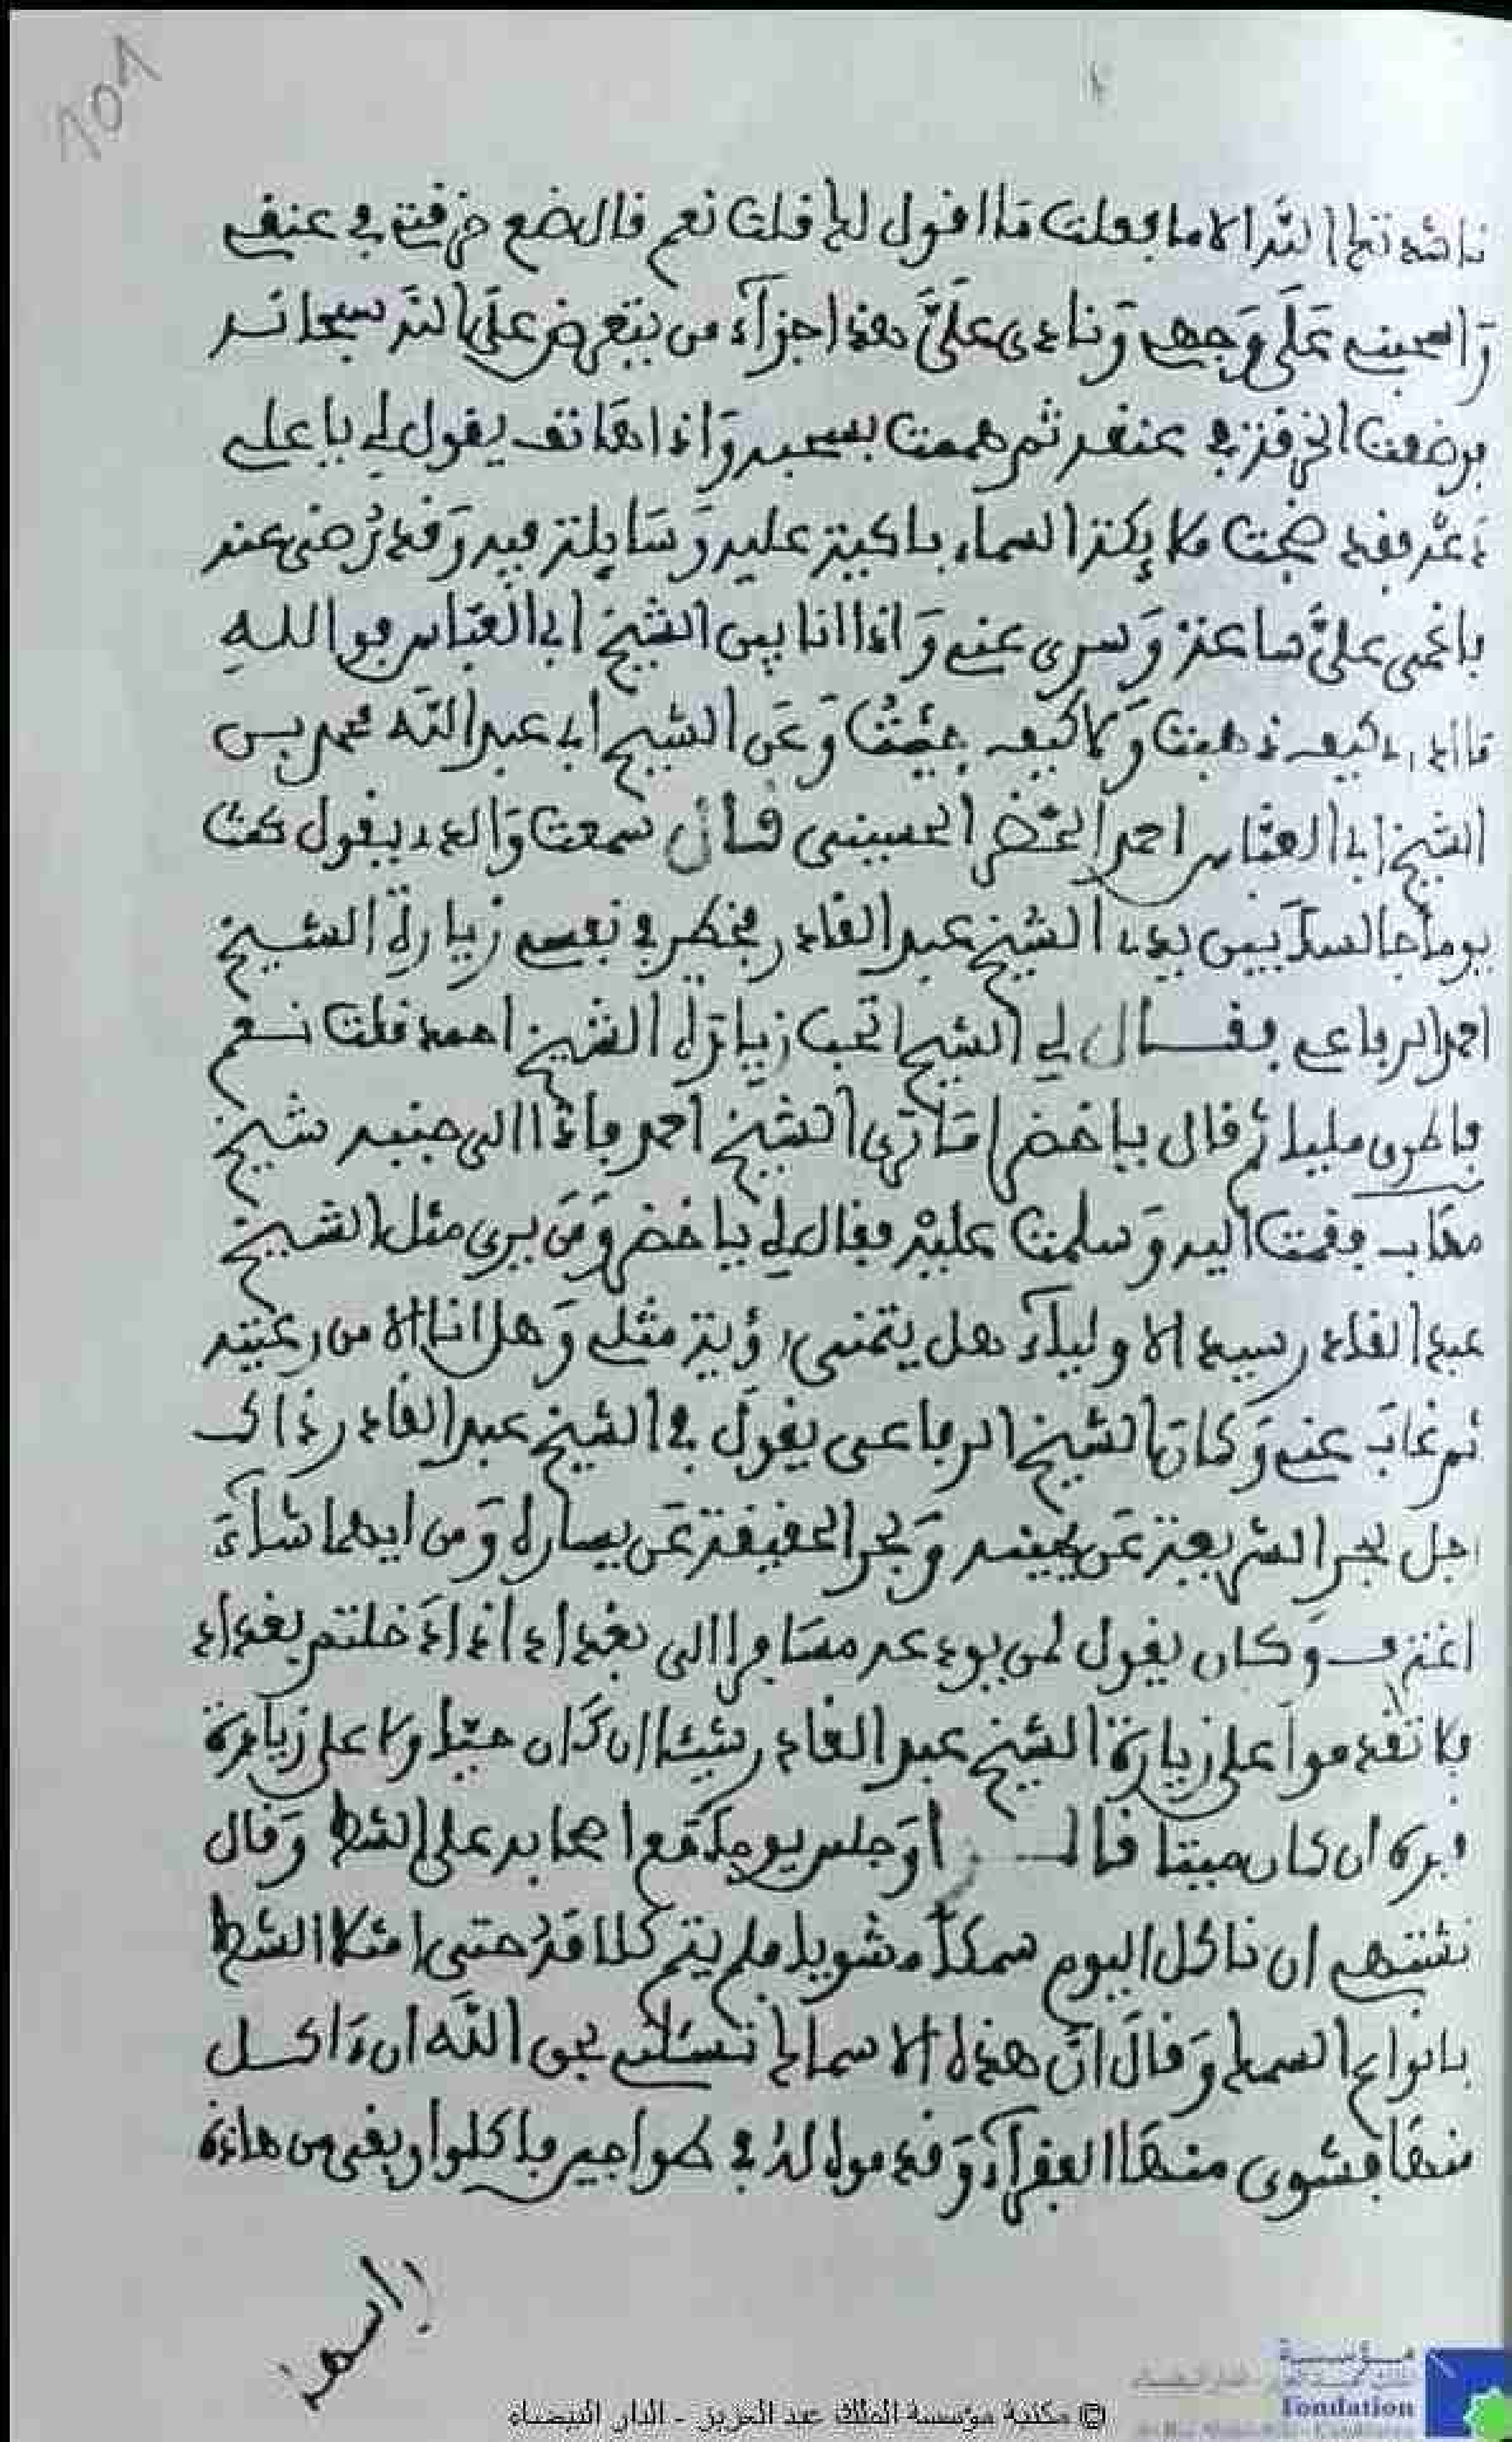 101
ناشدتك الله الا ما فعلت ما اقول لك قلت نعم قال ضع خرقتي في عنقي
واسحبني على وجهي وناد علي هذا جزاء من يتعرض على الله سبحانه
فوضعت الخرقة في عنقه ثم هممت بسحبه واذا هاتف يقول لي يا علي
دعه فقد ضجت ملايكة السماء باكية عليه وسايلة فيه وقد رضي عنه
فاغمي علي ساعة وسري عني واذا انا بين الشيخ ابي العباس فوالله
ما ادري كيف ذهبت ولا كيف جئت وعن الشيخ ابي عبد الله محمد بن
الشيخ ابي العباس احمد الخضر الحسيني قال سمعت والدي يقول كنت
يوما جالسا بين يدي الشيخ عبد القادر فخطر في نفسي زيارة الشيخ
احمد الرفاعي فقال لي الشيخ اتحب زيارة الشيخ احمد قلت نعم
فاطرق مليا ثم قال يا خضر اما ترى الشيخ احمد فاذا الى جنبه شيخ
مهاب فقمت اليه وسلمت عليه فقال لي يا خضر ومن يرى مثل الشيخ
عبد القادر سيد الاولياء هل يتمنى رؤية مثلي وهل انا الا من رعيته
ثم غاب عني وكان الشيخ الرفاعي يقول في الشيخ عبد القادر ذاك
رجل بحر الشريعة عن يمينه وبحر الحقيقة عن يساره ومن ايهما شاء
اغترف وكان يقول لمن يودعه مسافرا الى بغداد اذا دخلتم بغداد
فلا تقدموا على زيارة الشيخ عبد القادر شيئا ان كان حيا ولا على زيارة
قبره ان كان ميتا قال وجلس يوما مع اصحابه على الشط وقال
نشتهي ان ناكل اليوم سمكا مشويا فلم يتم كلامه حتى امتلا الشط
بانواع السمك وقال ان هذه الاسماك تسئلني بحق الله ان ءاكل
منها فشوى منها الفقراء وقدموا له في طواجين فاكلوا وبقي من هاذه
السمكة
© مكتبة مؤسسة الملك عبد العزيز - الدار البيضاء
مؤسسة
Fondation